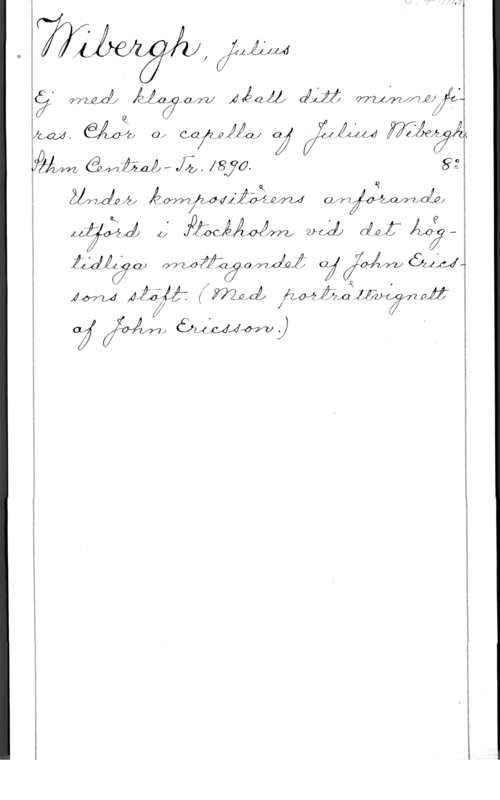 Wibergh, Julius
Ej med klagan skall ditt minne fi-
ras. Chör a capella af Julius Wibergh
Sthm Central-Tr. 1890. 8:o
Under kompositörens anförande
utförd i Stockholm vid det hög-
tidliga mottagandet af John Erics-
sons stoft. (Med porträttvignett
af John Ericsson.)